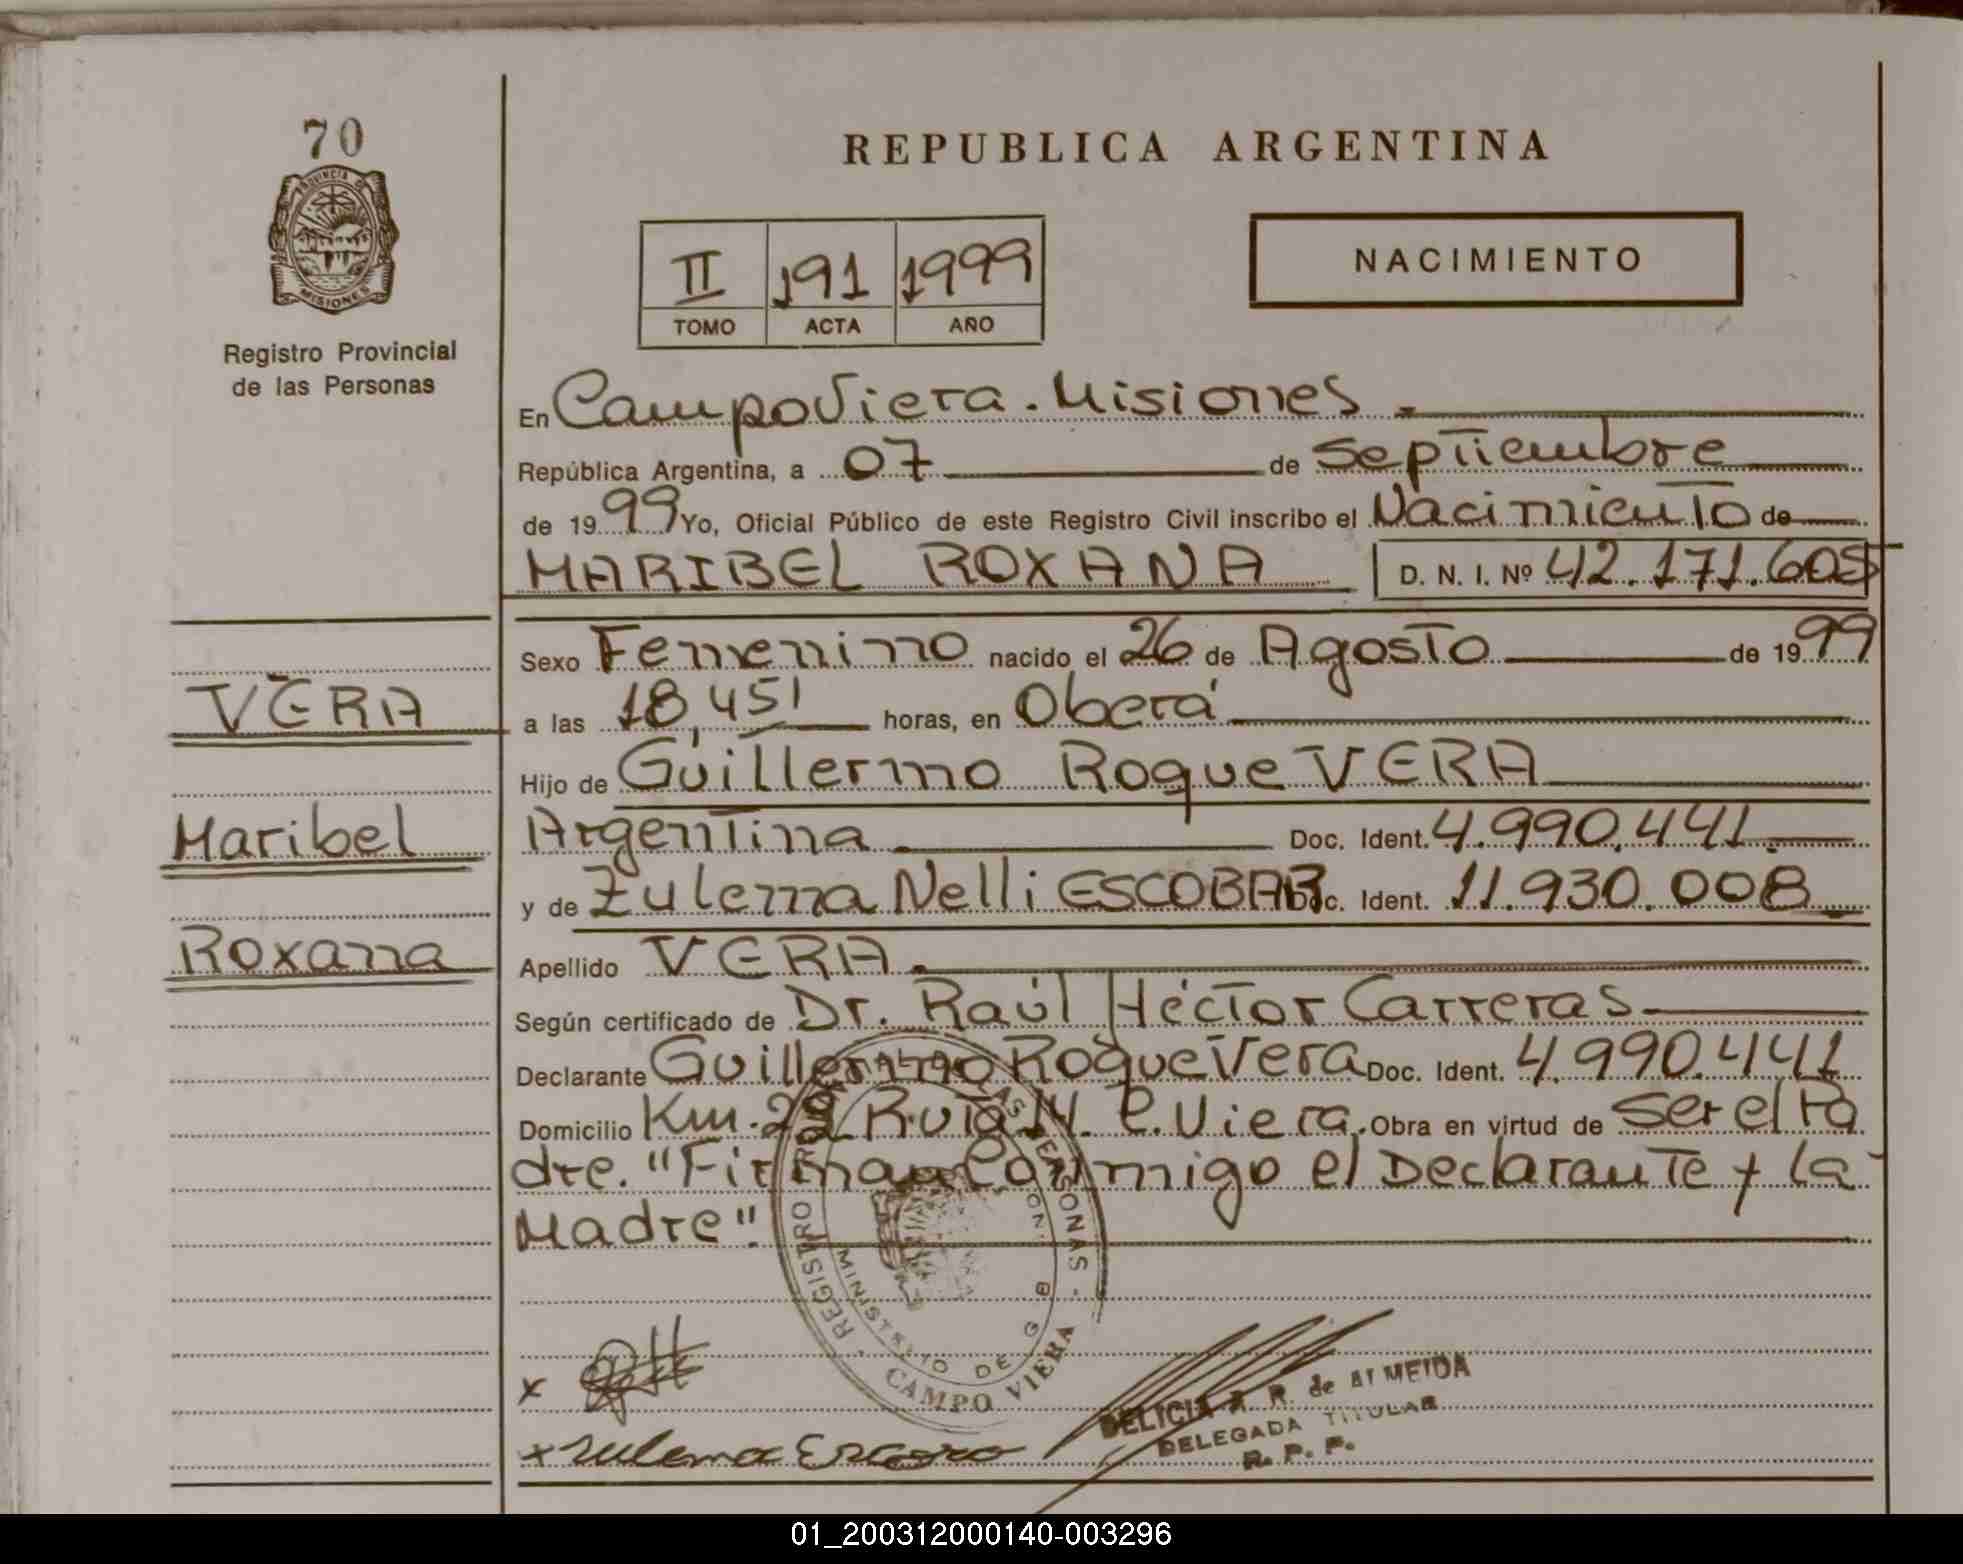 70
PROVINCIA DE
MISIONES
Registro Provincial
de las Personas
REPUBLICA ARGENTINA
II 191 1999
TOMO ACTA AÑO
NACIMIENTO
En Campo Viera. Misiones.
República Argentina, a 07 de Septiembre
de 1999 Yo, Oficial Público de este Registro Civil inscribo el Nacimiento de
MARIBEL ROXANA D. N. I. Nº 42.171.605
Sexo Femenino nacido el 26 de Agosto de 1999
VERA
a las 18,45' horas, en Oberá
Hijo de Guillermo Roque VERA
Maribel
Argentina Doc. Ident. 4.990.441.
y de Zulema Nelli ESCOBAR Doc. Ident. 11.930.008
Roxana
Apellido VERA.
Según certificado de Dr. Raúl Héctor Carreras
Declarante Guillermo Roque Vera Doc. Ident. 4.990.441
Domicilio Km. 22 Ruta 14. C. Viera. Obra en virtud de ser el Pa
dre. "Firman Conmigo el Declarante y la
Madre".
REGISTRO PERSONAS
MINISTERIO DE GOB
CAMPO VIERA
x
x Zulema
DELICIA R. de ALMEIDA
DELEGADA TITULAR
R. P. P.
01_200312000140-003296